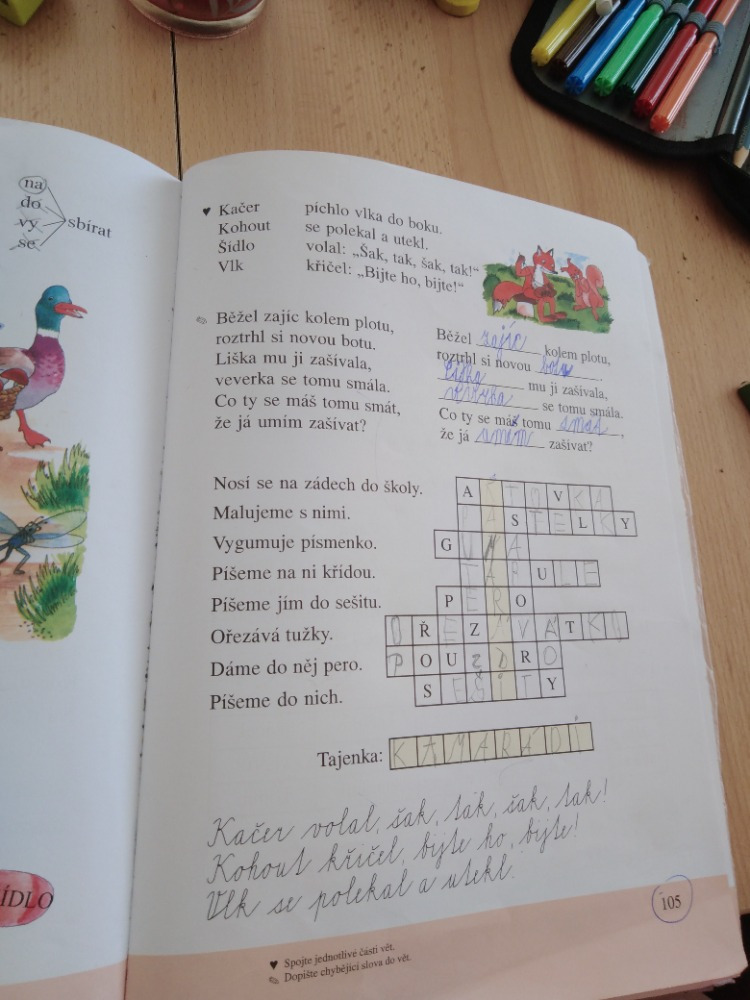 na
do
vy
se
sbírat
♥ Kačer píchlo vlka do boku.
Kohout se polekal a utekl.
Šídlo volal: „Šak, tak, šak, tak!“
Vlk křičel: „Bijte ho, bijte!“
Běžel zajíc kolem plotu,
roztrhl si novou botu.
Liška mu ji zašívala,
veverka se tomu smála.
Co ty se máš tomu smát,
že já umím zašívat?
Běžel zajíc kolem plotu,
roztrhl si novou botu.
Liška mu ji zašívala,
veverka se tomu smála.
Co ty se máš tomu smát,
že já umím zašívat?
Nosí se na zádech do školy. AKTOVKA
Malujeme s nimi. PASTELKY
Vygumuje písmenko. GUMA
Píšeme na ni křídou. TABULE
Píšeme jím do sešitu. PERO
Ořezává tužky. OŘEZÁVÁTKO
Dáme do něj pero. POUZDRO
Píšeme do nich. SEŠITY
Tajenka: KAMARÁDI
Kačer volal, šak, tak, šak, tak!
Kohout křičel, bijte ho, bijte!
Vlk se polekal a utekl.
ÍDLO
105
♥ Spojte jednotlivé části vět.
✎ Dopište chybějící slova do vět.